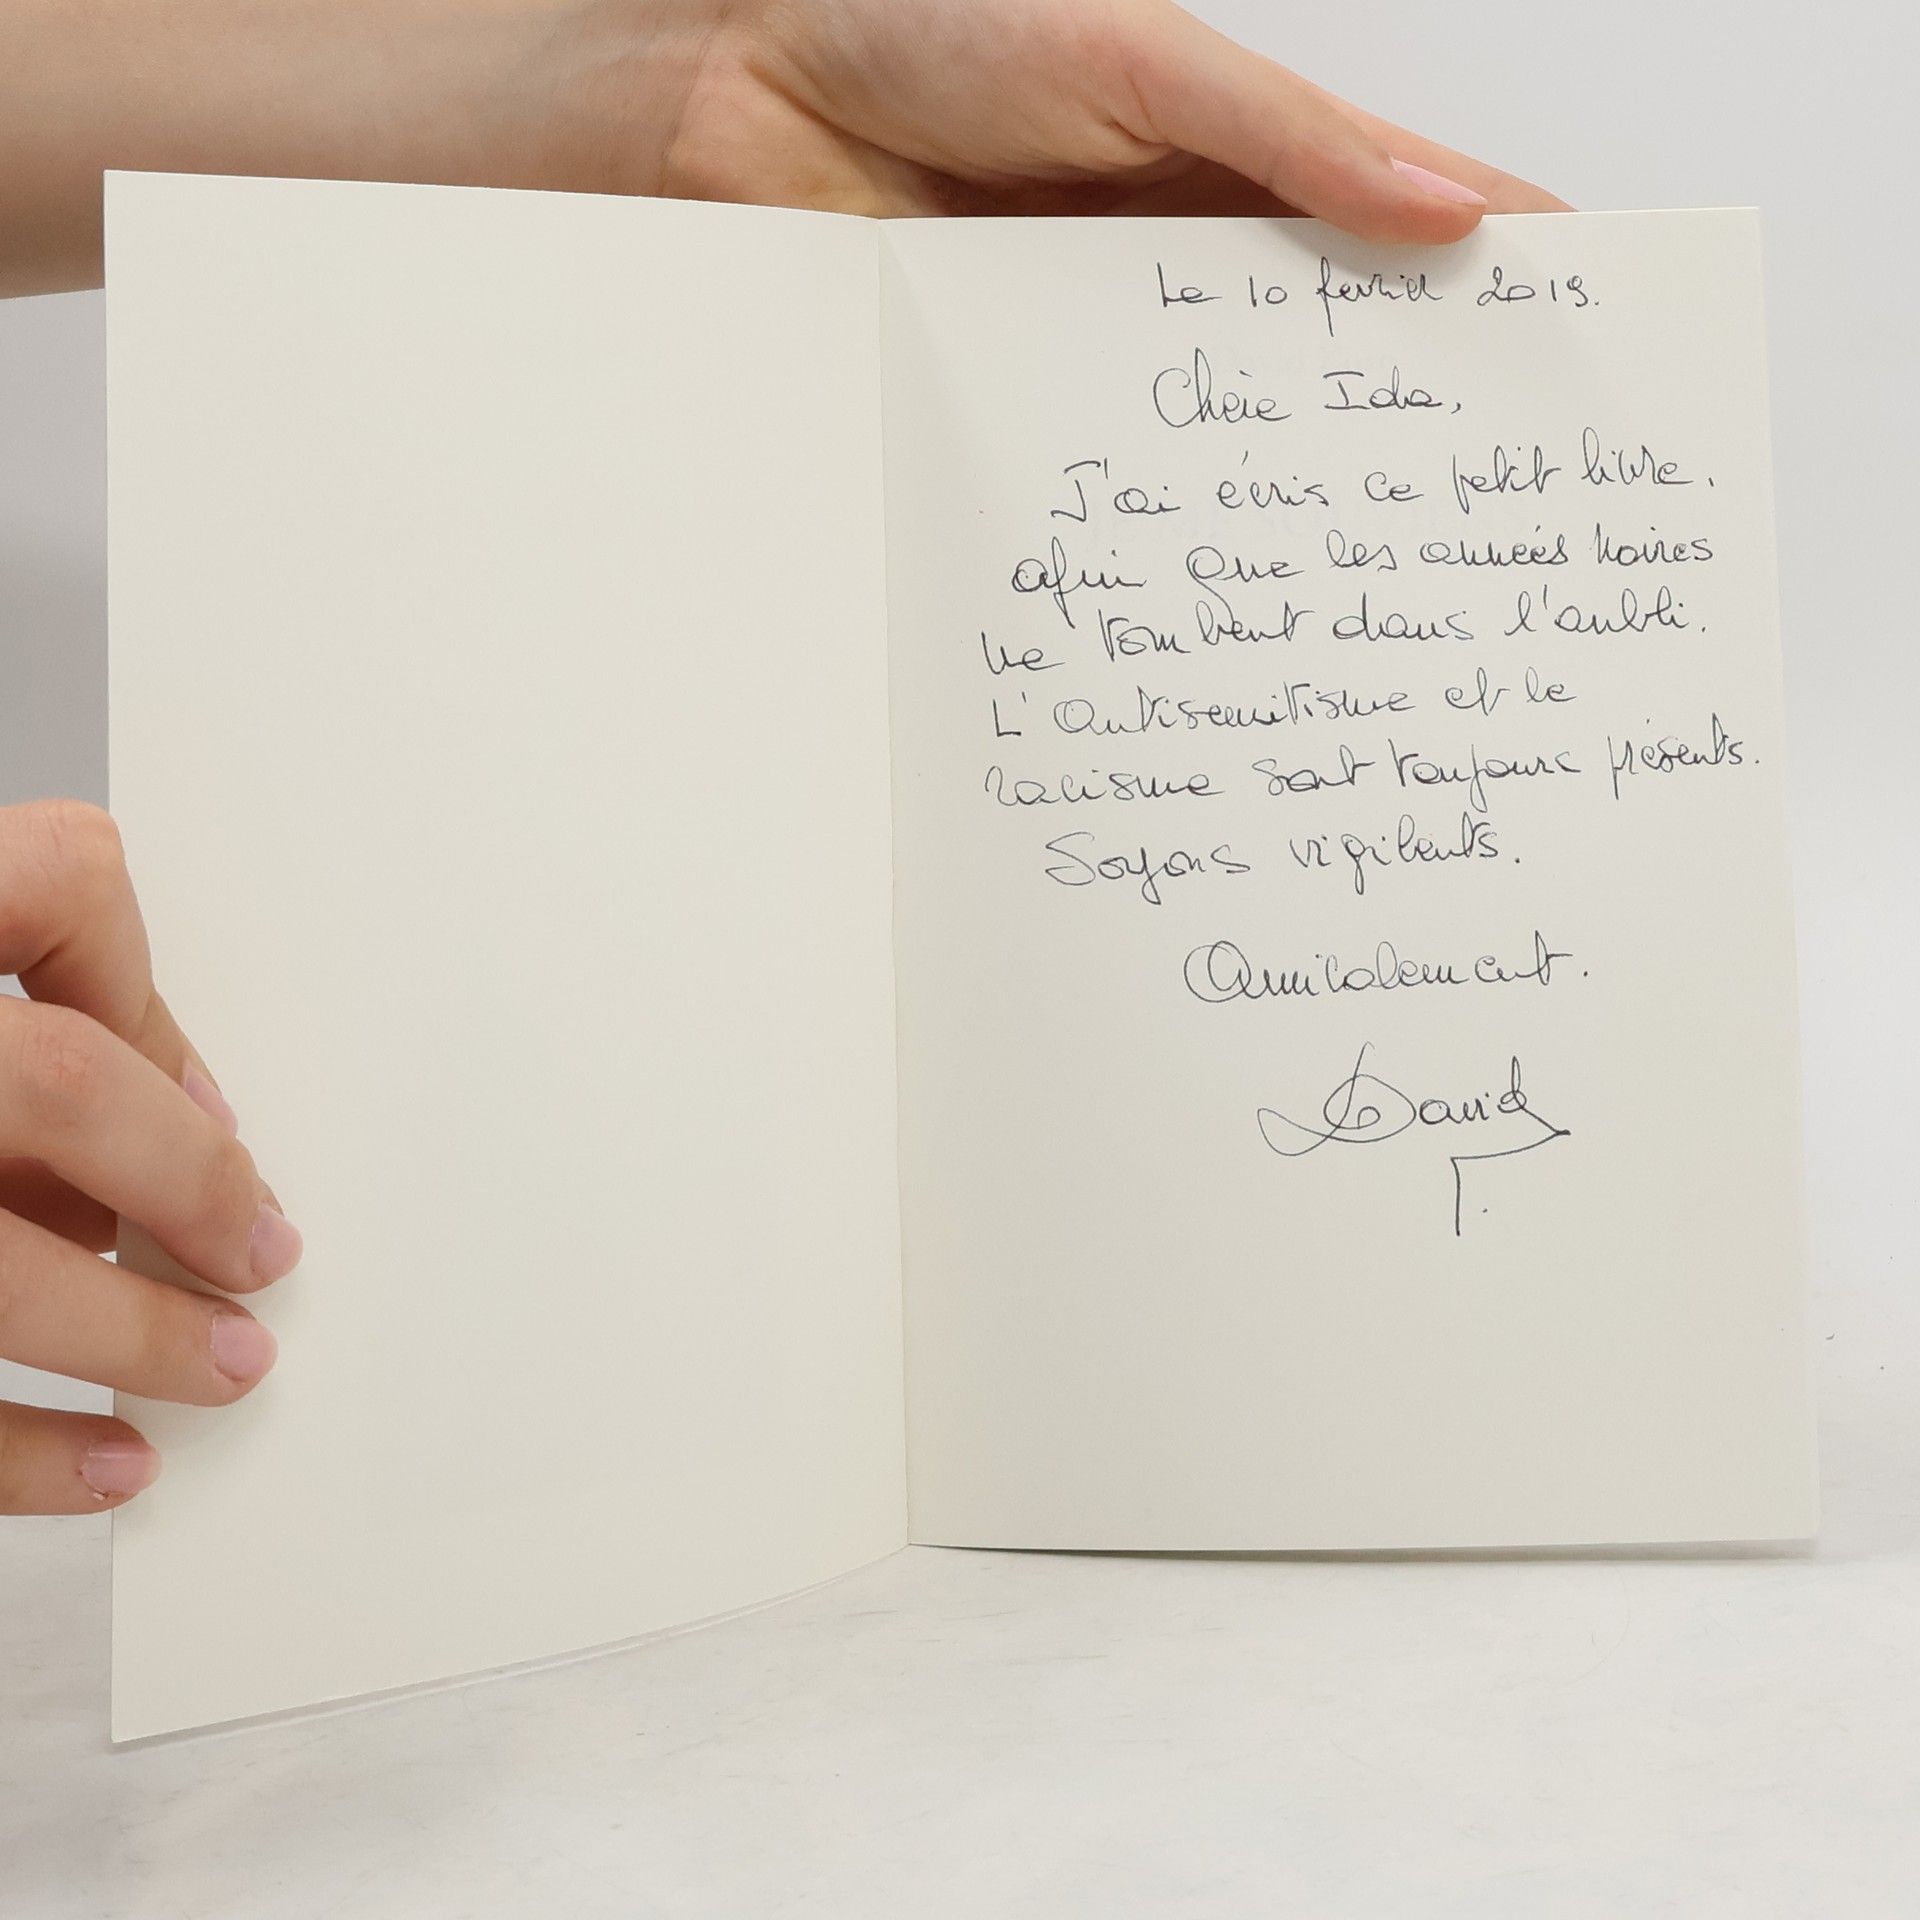 Le 10 fevrier 2019.
Chère Ida,
J'ai écris ce petit livre.
afin que les années noires
ne tombent dans l'oubli.
L'Antisemitisme et le
racisme sont toujours présents.
Soyons vigilents.
Amicalement.
David